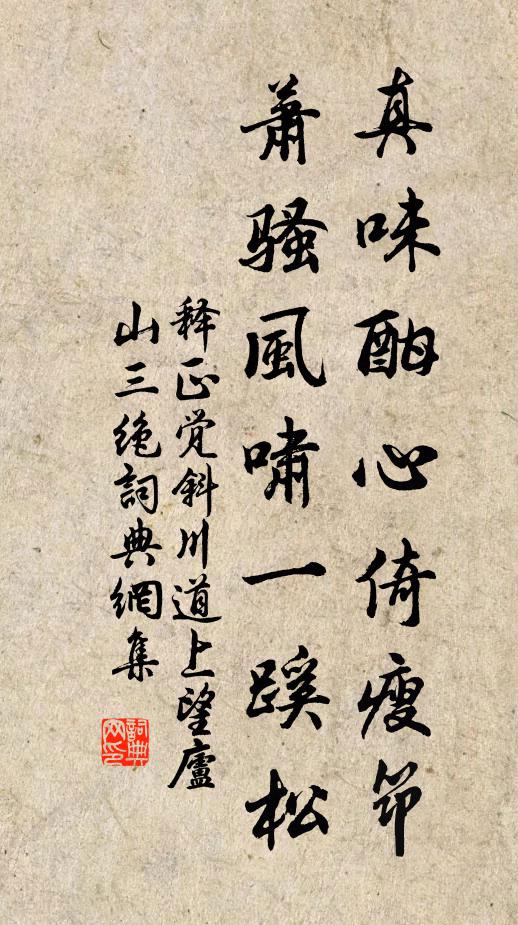 真味酣心倚瘦筇
蕭骚風嘯一蹊松
释正觉斜川道上望廬
山三绝詞典網集
詞典
网印